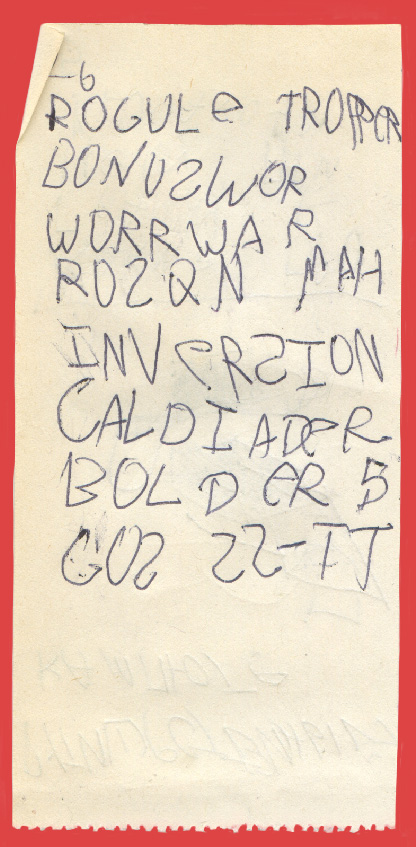 -6
ROGULe TROPPER
BONUSWOR
WORRWAR
ROZQN MAH
INVeRSION
CALDIADeR
BOLDeR 5
GOS SS-TJ